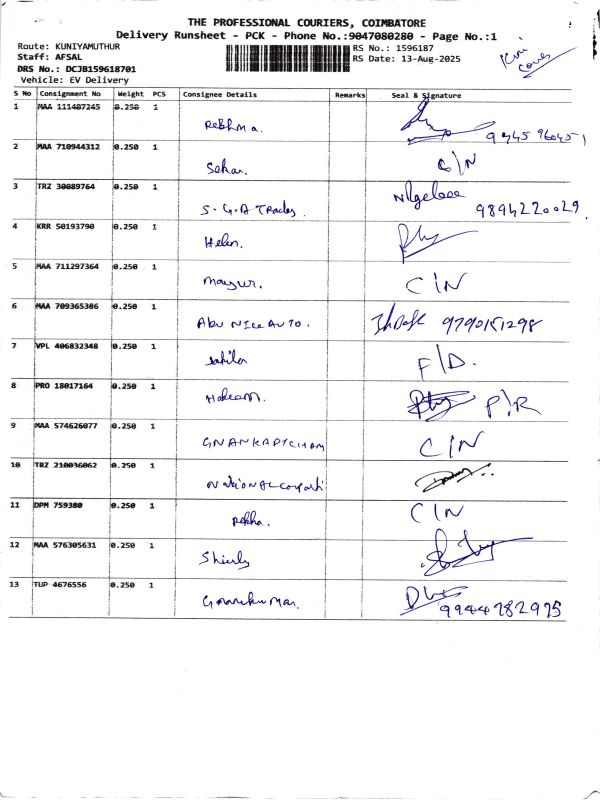 THE PROFESSIONAL COURIERS, COIMBATORE
Delivery Runsheet - PCK - Phone No.:9047080280 - Page No.:1
Route: KUNIYAMUTHUR
Staff: AFSAL
DRS No.: DCJB159618701
Vehicle: EV Delivery
RS No.: 1596187
RS Date: 13-Aug-2025
S No Consignment No Weight PCS Consignee Details Remarks Seal & Signature
1 MAA 111407245 0.250 1
2 MAA 710944312 0.250 1
Sekar. C/N
3 TRZ 30089764 0.250 1
S.G.A Traders 9894220029
4 KRR 50193790 0.250 1
Helen.
5 MAA 711297364 0.250 1
Mayur. C/N
6 MAA 709365386 0.250 1
ABU NICE AUTO. 9790151298
7 VPL 406832348 0.250 1
F/D.
8 PRO 18017164 0.250 1
P/R
9 MAA 574626077 0.250 1
C/N
10 TRZ 210036062 0.250 1
11 DPM 759380 0.250 1
Rekha. C/N
12 MAA 576305631 0.250 1
13 TUP 4676556 0.250 1
9944782975